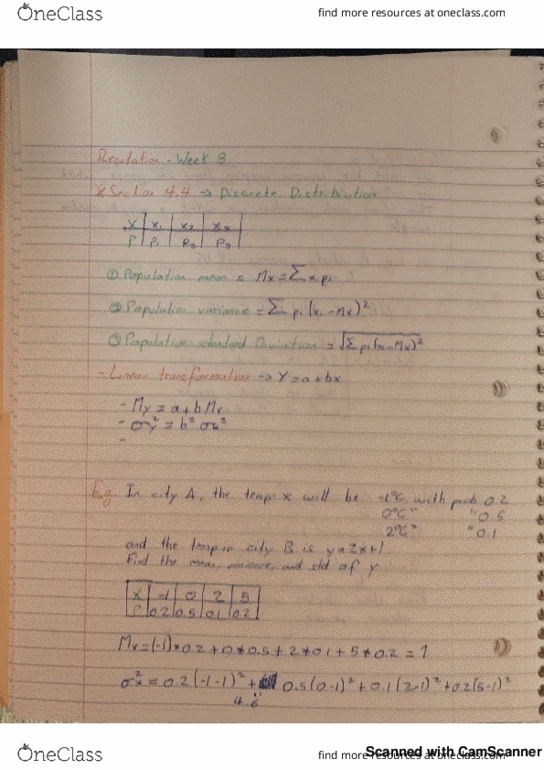 OneClass
find more resources at oneclass.com
Recitation - Week 8
* Section 4.4 → Discrete Distribution
X | x₁ | x₂ | x₃
P | P₁ | P₂ | P₃
① Population mean = Mx = Σ xᵢpᵢ
② Population variance = Σ pᵢ (xᵢ - Mx)²
③ Population standard Deviation = √Σ pᵢ(xᵢ-Mx)²
- Linear transformation → Y = a + bx
- My = a + b Mx
- σy² = b² σx²
-
Eg. In city A, the temp x will be -1°C with prob 0.2
0°C " " 0.5
2°C " " 0.1
and the temp in city B is y = 2x+1
Find the mean, variance, and std of y
X | -1 | 0 | 2 | 5
P | 0.2 | 0.5 | 0.1 | 0.2
Mx = (-1)*0.2 + 0*0.5 + 2*0.1 + 5*0.2 = 1
σx² = 0.2(-1-1)² + 0.5(0-1)² + 0.1(2-1)² + 0.2(5-1)²
= 4.6
OneClass
find more resources at oneclass.com
Scanned with CamScanner